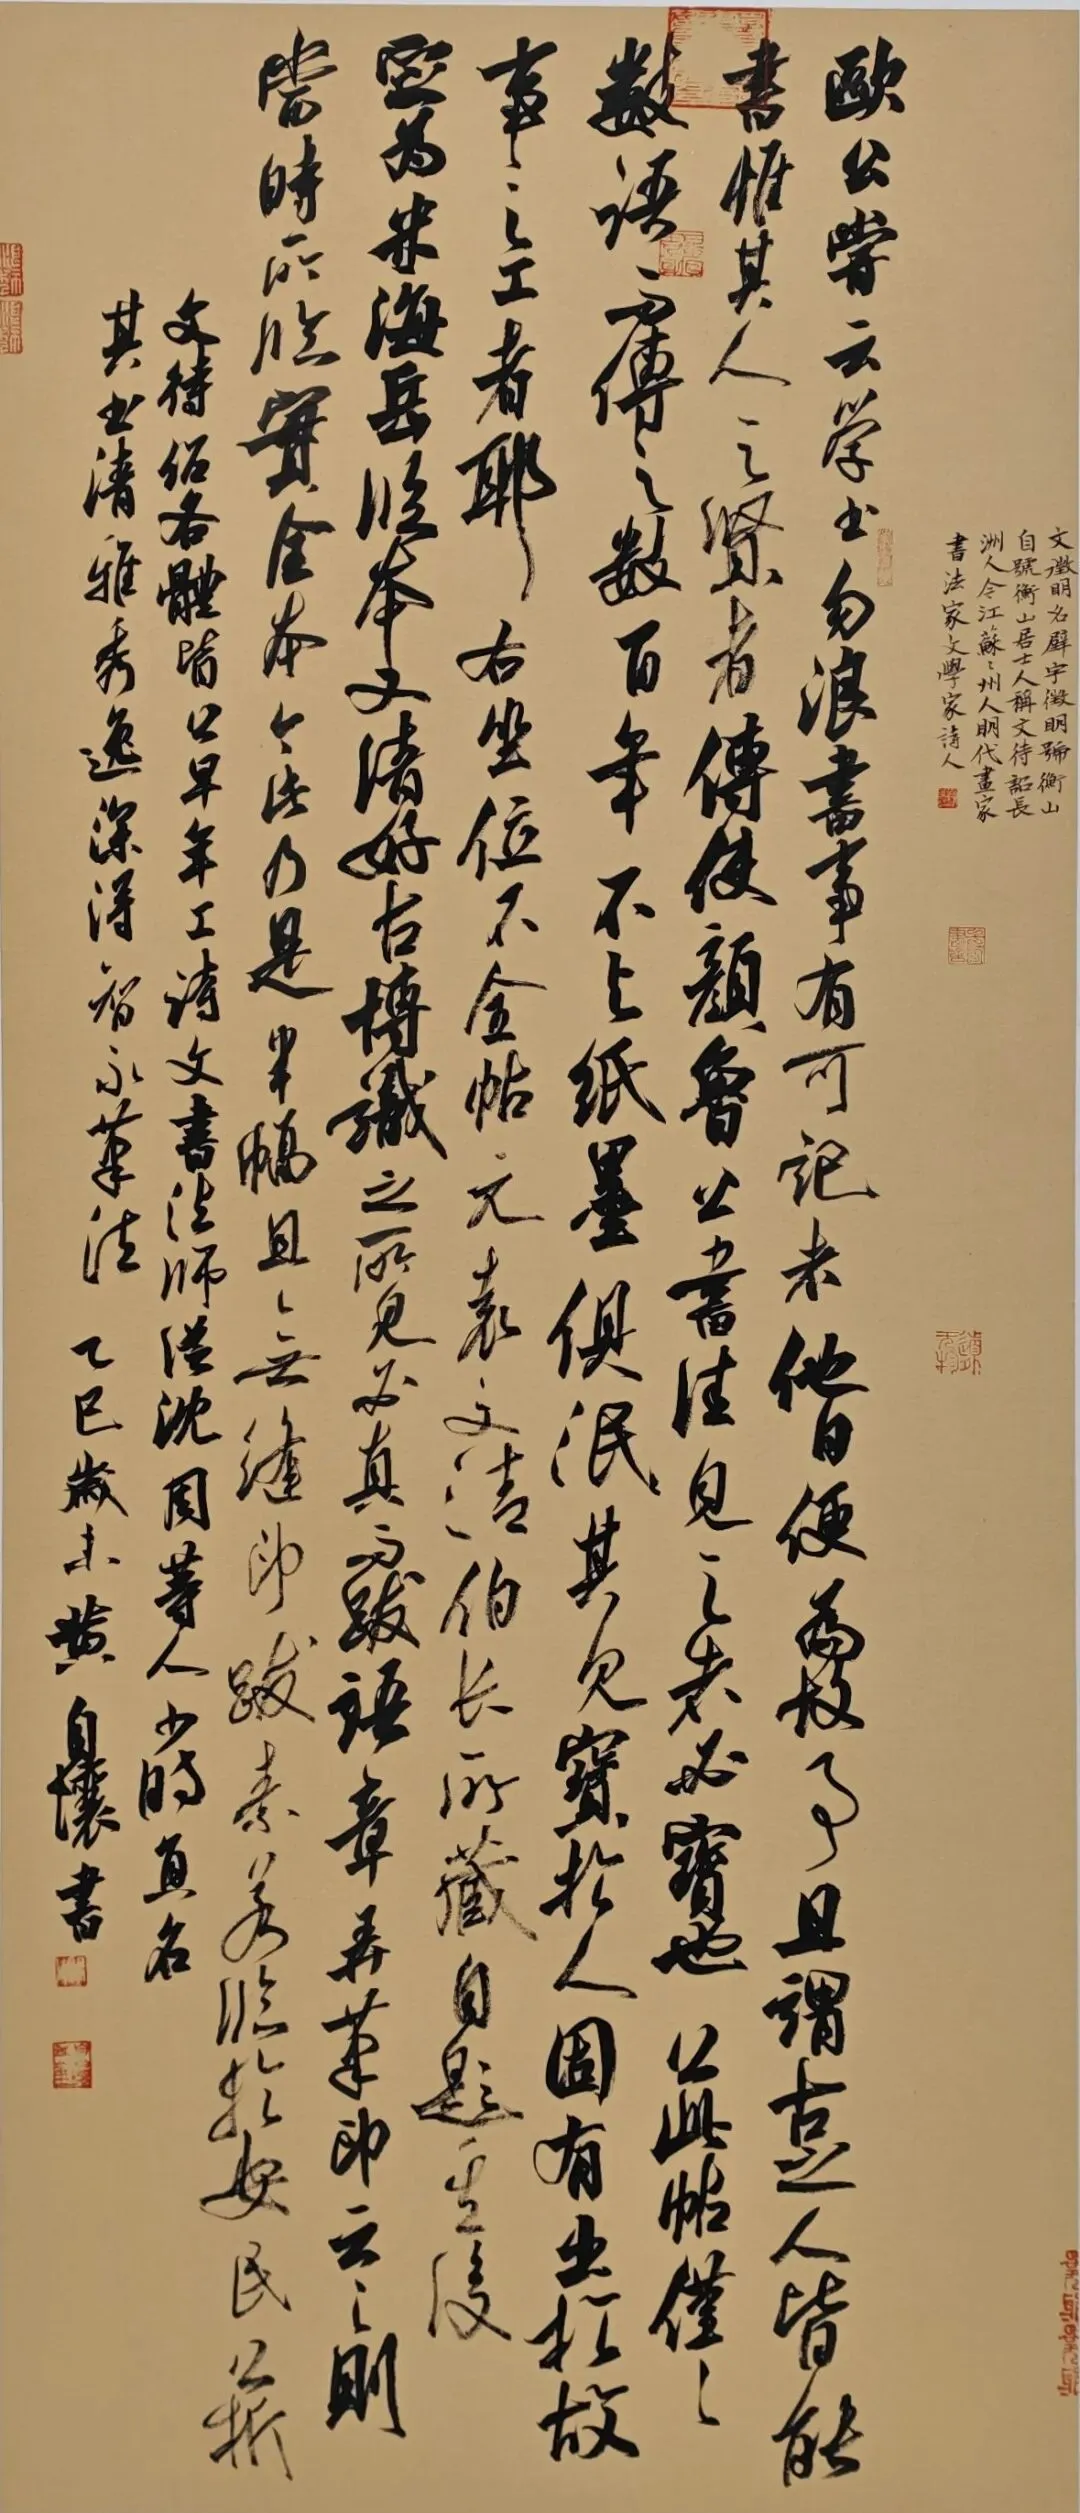 文徵明名壁字徵明號衡山
自號衡山居士人稱文待詔長
洲人今江蘇蘇州人明代畫家
書法家文學家詩人
歐公嘗云學書勿浪書事有可記者他日便為故事且謂古之人皆能
書惟其人之賢者傳使顏魯公書佳見之者必寶也公此帖僅僅
數語而傳之數百年不與紙墨俱泯其見寶於人固有出於故
事之工者耶右坐位不全帖元袁文清伯長所藏自題其後
定為米海岳臨本文清好古博識之所見必真而跋語章弄筆印云云則
當時所臨實全本今此乃是半幅且無縫印跋素若臨於安民
文待詔各體皆公早年工詩文書法師從沈周等人少時真名
其書清雅秀逸深得智永筆法乙巳歲末黃自懷書